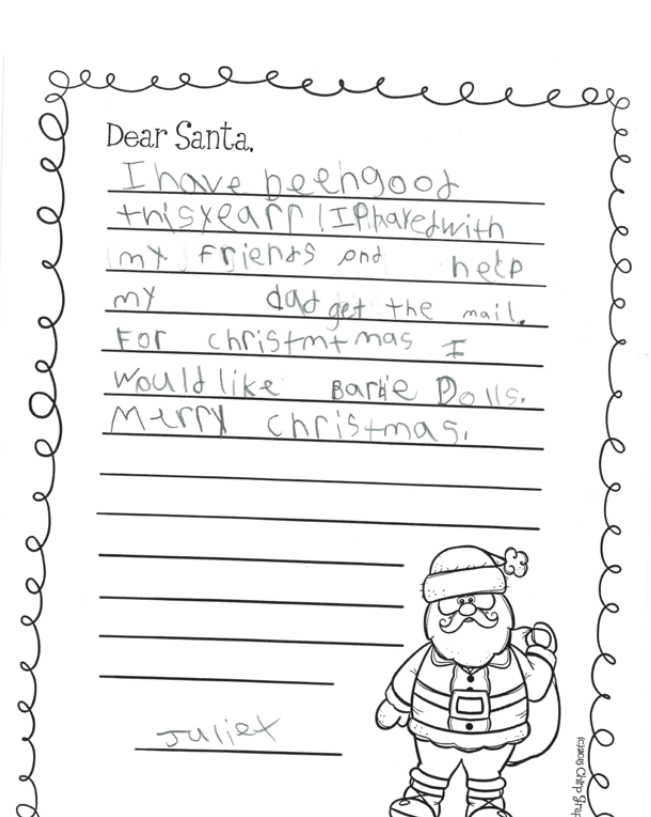 Dear Santa,
I have beehgood
thisyearr I Iphavedwith
my friends and help
my dad get the mail.
For christmtmas I
would like Barbie Dolls.
Merry christmas.
Juliet